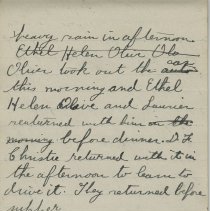 heavy rain in afternoon.
Ethel Helen Oliver
Oliver took out the car auto
this morning and Ethel
Helen Olive and Laurier
returned with him in the
morning before dinner. D. F.
Christie returned with it in
the afternoon to learn to
drive it. They returned before
supper